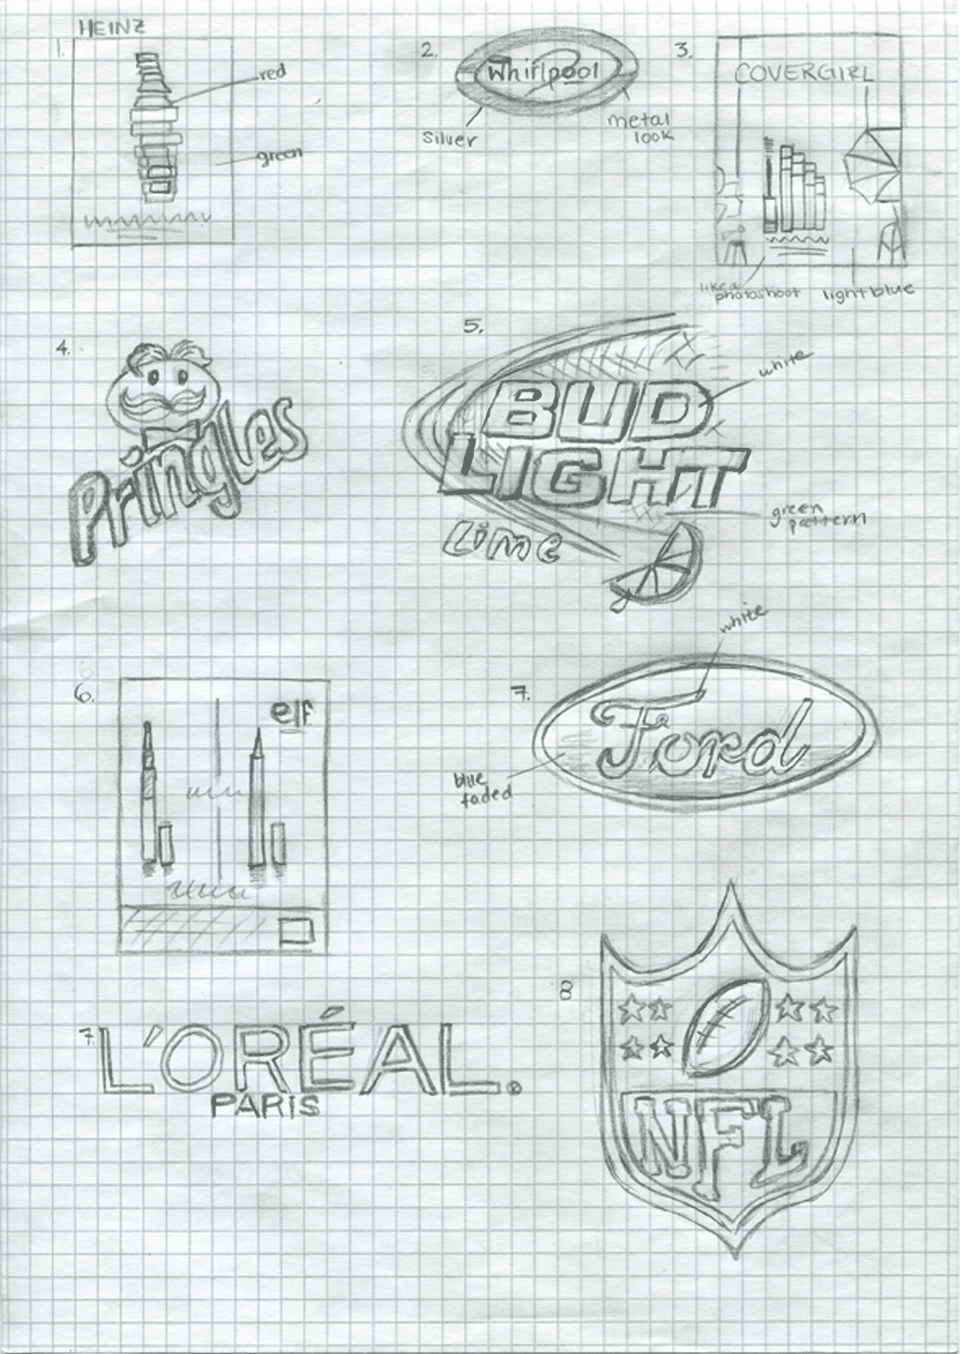 HEINZ
1.
red
green
2.
Whirlpool
Silver
metal
look
3.
COVERGIRL
like a
photoshoot
light blue
4.
Pringles
5.
BUD
LIGHT
Lime
white
green
pattern
6.
elf
7.
Ford
white
blue
faded
7.
L'ORÉAL
PARIS
8
NFL